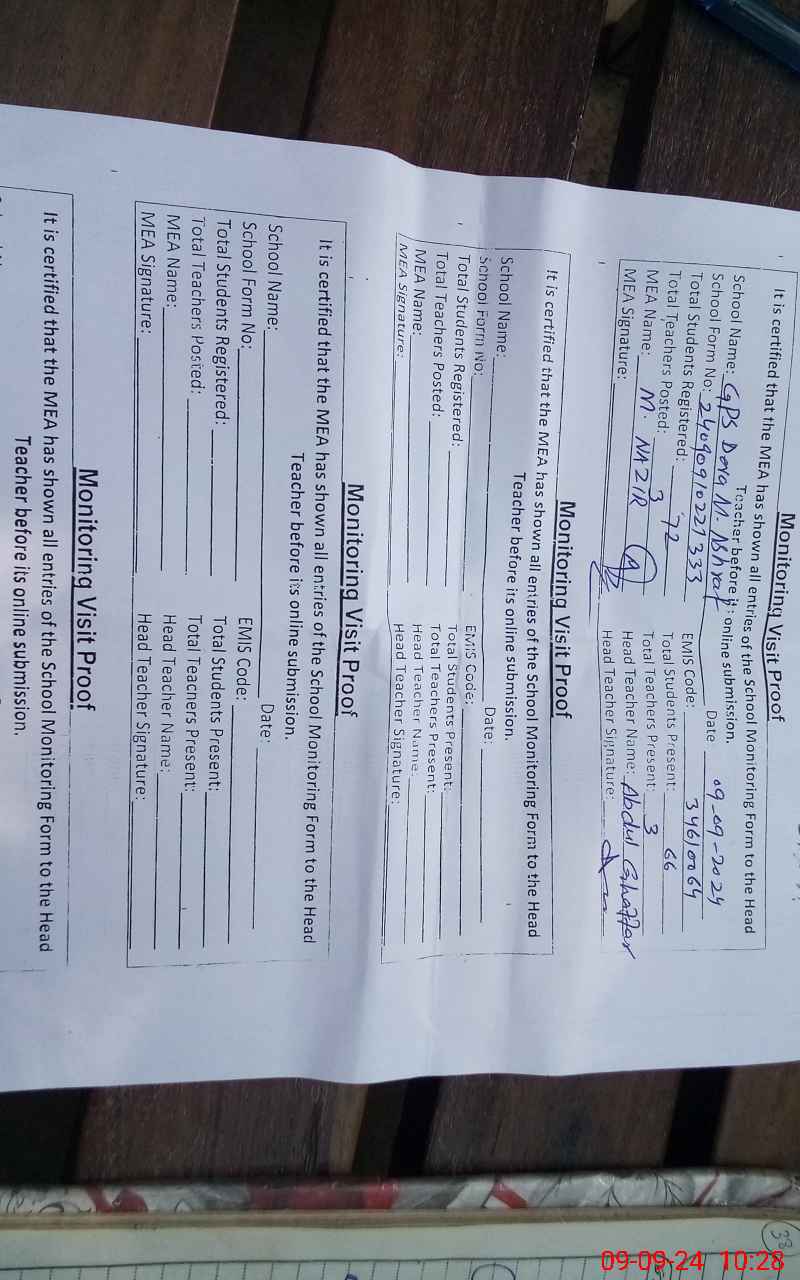 Monitoring Visit Proof
It is certified that the MEA has shown all entries of the School Monitoring Form to the Head
Teacher before its online submission.
School Name: GPS Dera M. Ashraf Date 09-09-2024
School Form No: 24090910221333 EMIS Code: 34610064
Total Students Registered: 72 Total Students Present: 66
Total Teachers Posted: 3 Total Teachers Present: 3
MEA Name: M. NAZIR Head Teacher Name: Abdul Ghaffar
MEA Signature: Head Teacher Signature:
Monitoring Visit Proof
It is certified that the MEA has shown all entries of the School Monitoring Form to the Head
Teacher before its online submission.
School Name: Date:
School Form No: EMIS Code:
Total Students Registered: Total Students Present:
Total Teachers Posted: Total Teachers Present:
MEA Name: Head Teacher Name:
MEA Signature: Head Teacher Signature:
Monitoring Visit Proof
It is certified that the MEA has shown all entries of the School Monitoring Form to the Head
Teacher before its online submission.
School Name: Date:
School Form No: EMIS Code:
Total Students Registered: Total Students Present:
Total Teachers Posted: Total Teachers Present:
MEA Name: Head Teacher Name:
MEA Signature: Head Teacher Signature:
Monitoring Visit Proof
It is certified that the MEA has shown all entries of the School Monitoring Form to the Head
Teacher before its online submission.
38
09-09-24 10:28